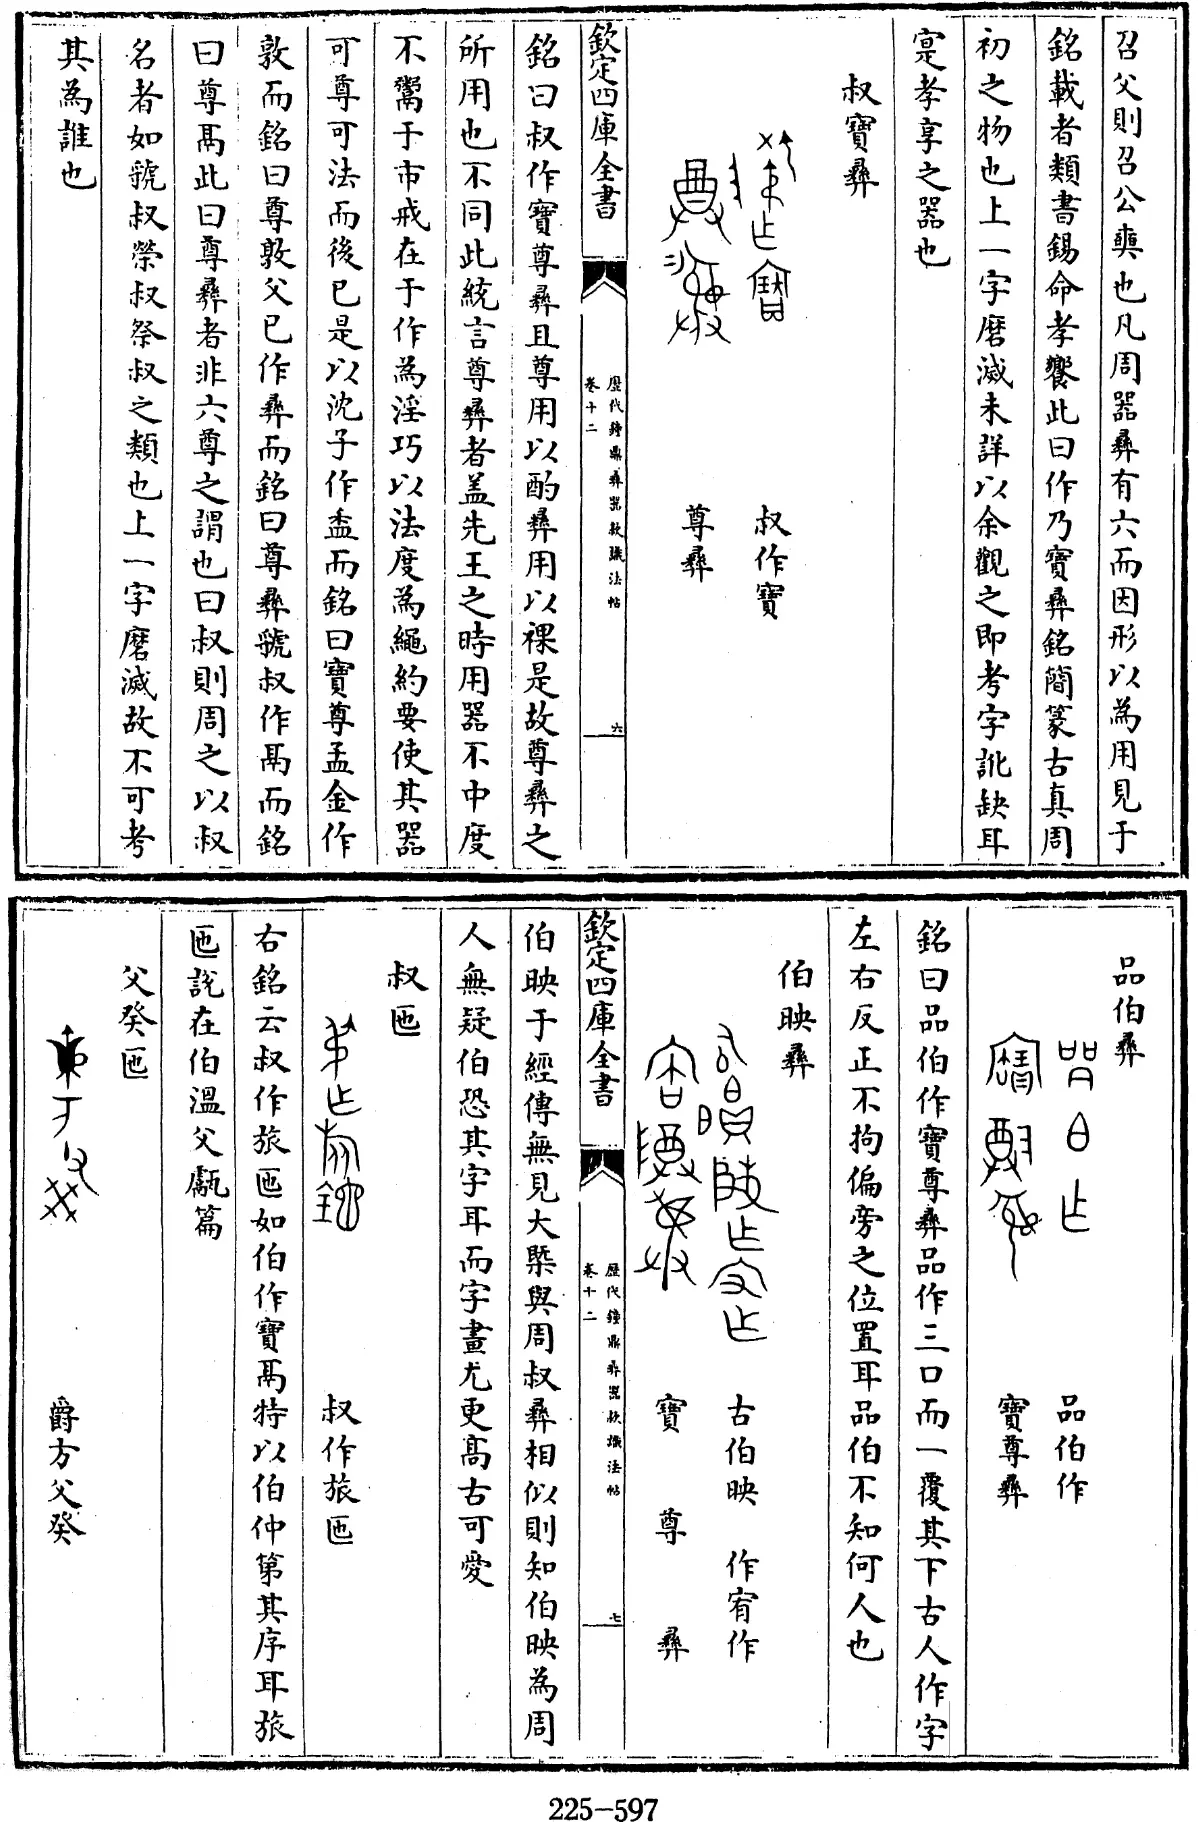 召父則召公奭也凡周器彝有六而因形以為用見于
銘載者類書錫命孝饗此曰作乃寶彝銘簡篆古真周
初之物也上一字磨滅未詳以余觀之即考字訛缺耳
寔孝享之器也
叔寶彝
叔作寶
尊彝
欽定四庫全書
歷代鐘鼎彝器款識法帖
卷十二
六
銘曰叔作寶尊彝且尊用以酌彝用以祼是故尊彝之
所用也不同此統言尊彝者盖先王之時用器不中度
不鬻于市戒在于作為淫巧以法度為繩約要使其器
可尊可法而後已是以沈子作盉而銘曰寶尊盂金作
敦而銘曰尊敦父已作彝而銘曰尊彝虢叔作鬲而銘
曰尊鬲此曰尊彝者非六尊之謂也曰叔則周之以叔
名者如虢叔榮叔祭叔之類也上一字磨滅故不可考
其為誰也
品伯彝
品伯作
寶尊彝
銘曰品伯作寶尊彝品作三口而一覆其下古人作字
左右反正不拘偏旁之位置耳品伯不知何人也
伯映彝
古伯映 作宥作
寶 尊 彝
欽定四庫全書
歷代鐘鼎彝器款識法帖
卷十二
七
伯映于經傳無見大槩與周叔彝相似則知伯映為周
人無疑伯恐其字耳而字畫尤更高古可愛
叔匜
叔作旅匜
右銘云叔作旅匜如伯作寶鬲特以伯仲第其序耳旅
匜説在伯溫父甗篇
父癸匜
爵方父癸
225-597